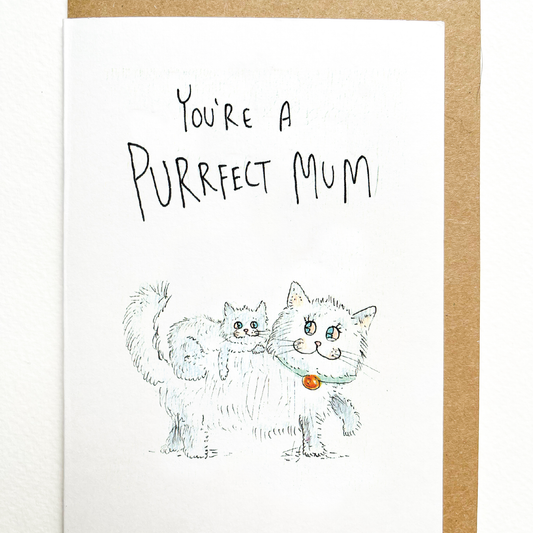 YOU'RE A
PURRFECT MUM